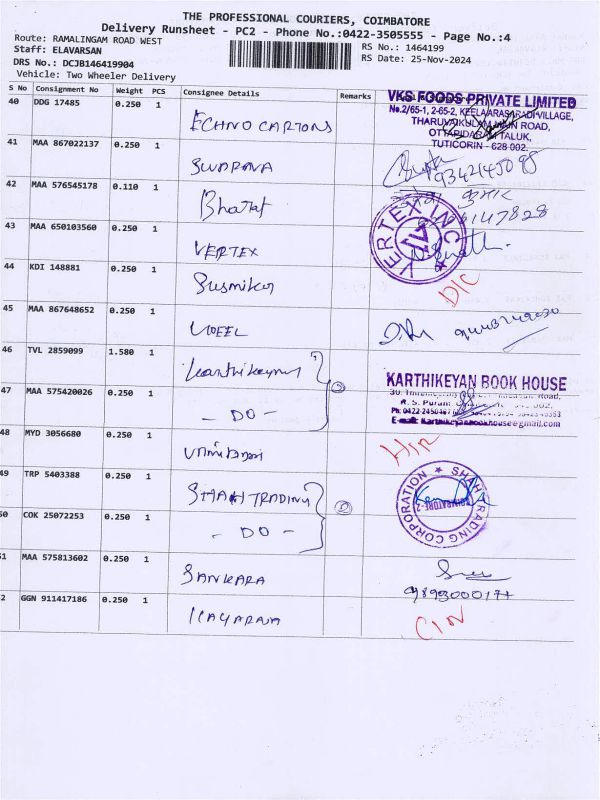 THE PROFESSIONAL COURIERS, COIMBATORE
Delivery Runsheet - PC2 - Phone No.:0422-3505555 - Page No.:4
Route: RAMALINGAM ROAD WEST
RS No.: 1464199
Staff: ELAVARSAN
RS Date: 25-Nov-2024
DRS No.: DCJB146419904
Vehicle: Two Wheeler Delivery
S No Consignment No Weight PCS Consignee Details Remarks
VKS FOODS PRIVATE LIMITED
No.2/65-1, 2-65-2, KEELAARASARADI VILLAGE,
THARUVAIKULAM MAIN ROAD,
OTTAPIDARAM TALUK,
TUTICORIN - 628 002.
40 DDG 17485 0.250 1 ECHNO CARTONS
41 MAA 867022137 0.250 1 SWARAVA
42 MAA 576545178 0.110 1 Bharat
43 MAA 650103560 0.250 1 VERTEX
VERTEX INC
44 KDI 148881 0.250 1 Susmitha
D/C
45 MAA 867648652 0.250 1
46 TVL 2859099 1.580 1 Karthikeyan
KARTHIKEYAN BOOK HOUSE
R. S. Puram
E-mail: karthikeyanbookhouse@gmail.com
47 MAA 575420026 0.250 1 - DO -
48 MYD 3056680 0.250 1
49 TRP 5403388 0.250 1 SHAH TRADING
SHAH TRADING CORPORATION
COIMBATORE-2
50 COK 25072253 0.250 1 - DO -
51 MAA 575813602 0.250 1 SANKARA
2 GGN 911417186 0.250 1